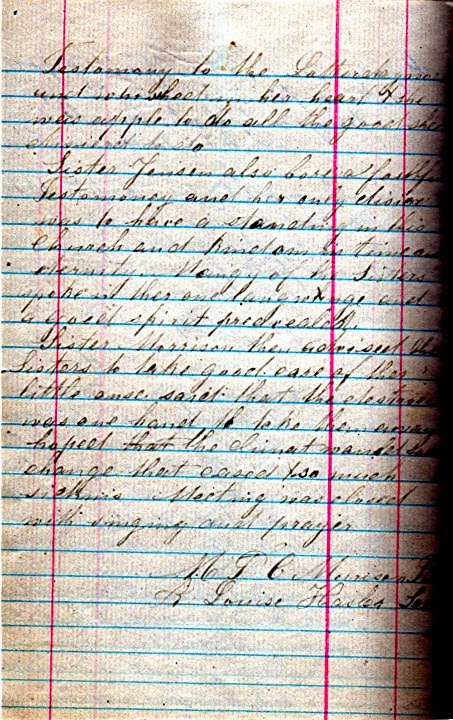 Testomony to the Latterday
and was her heart &
was apple to do all the good she
desired to do
Sister Jensen also bore a faithf
Testomoney and her only disire
was to have a standing in this
Church and Kindom in time an
eternity. Mangy of the Sisters
spoke in ther one langwage and
a good spirit prevealed.
Sister Morrison then advised the
Sisters to take good care of ther
little onse said that the destrie
was one hand to take them away
hoped that the climat would
change that cased so much
sicknis Meeting was closed
with singing and prayer
M F C Morrison
R Louise Hasler Se